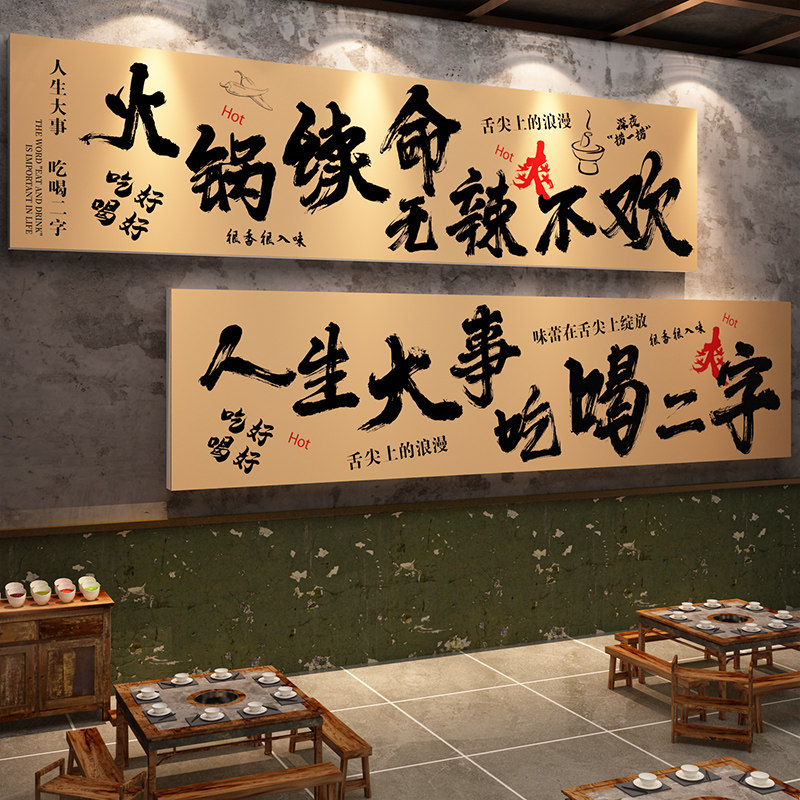 人生大事 吃喝二字
THE WORD "EAT AND DRINK"
IS IMPORTANT IN LIFE
火锅续命
无辣不欢
吃好
喝好
Hot
很香很入味
舌尖上的浪漫
Hot
爽
深夜
"捞一捞"
人生大事
吃喝二字
吃好
喝好
Hot
舌尖上的浪漫
味蕾在舌尖上绽放
很香很入味
Hot
爽